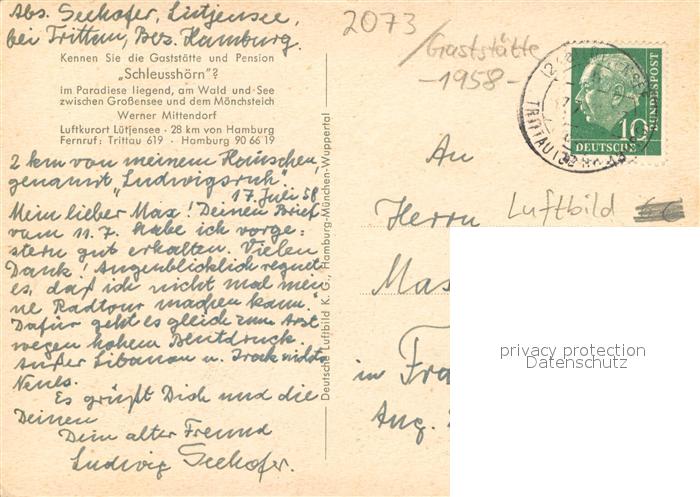 Abs. Seehofer, Lütjensee,
bei Trittau, Bez. Hamburg.
Kennen Sie die Gaststätte und Pension
„Schleusshörn"?
im Paradiese liegend, am Wald und See
zwischen Großensee und dem Mönchsteich
Werner Mittendorf
Luftkurort Lütjensee · 28 km von Hamburg
Fernruf: Trittau 619 · Hamburg 90 66 19
2 km von meinem Häuschen,
genannt „Ludwigsruh",
17. Juli 58.
Mein lieber Max! Deinen Brief
vom 11.7. habe ich vorge-
stern gut erhalten. Vielen
Dank! Augenblicklich regnet
es, daß ich nicht mal mei-
ne Radtour machen kann.
Dafür geht es gleich zum Arzt
wegen hohem Blutdruck.
Außer Libanon u. Irak nichts
Neues.
Es grüßt Dich und die
Deinen
Dein alter Freund
Ludwig Seehofer.
Deutsche Luftbild K. G., Hamburg-München-Wuppertal
2073
Gaststätte
-1958-
10
DEUTSCHE
BUNDESPOST
TRITTAU
An
Herrn
Luftbild
Max
in Fra
Aug.
privacy protection
Datenschutz